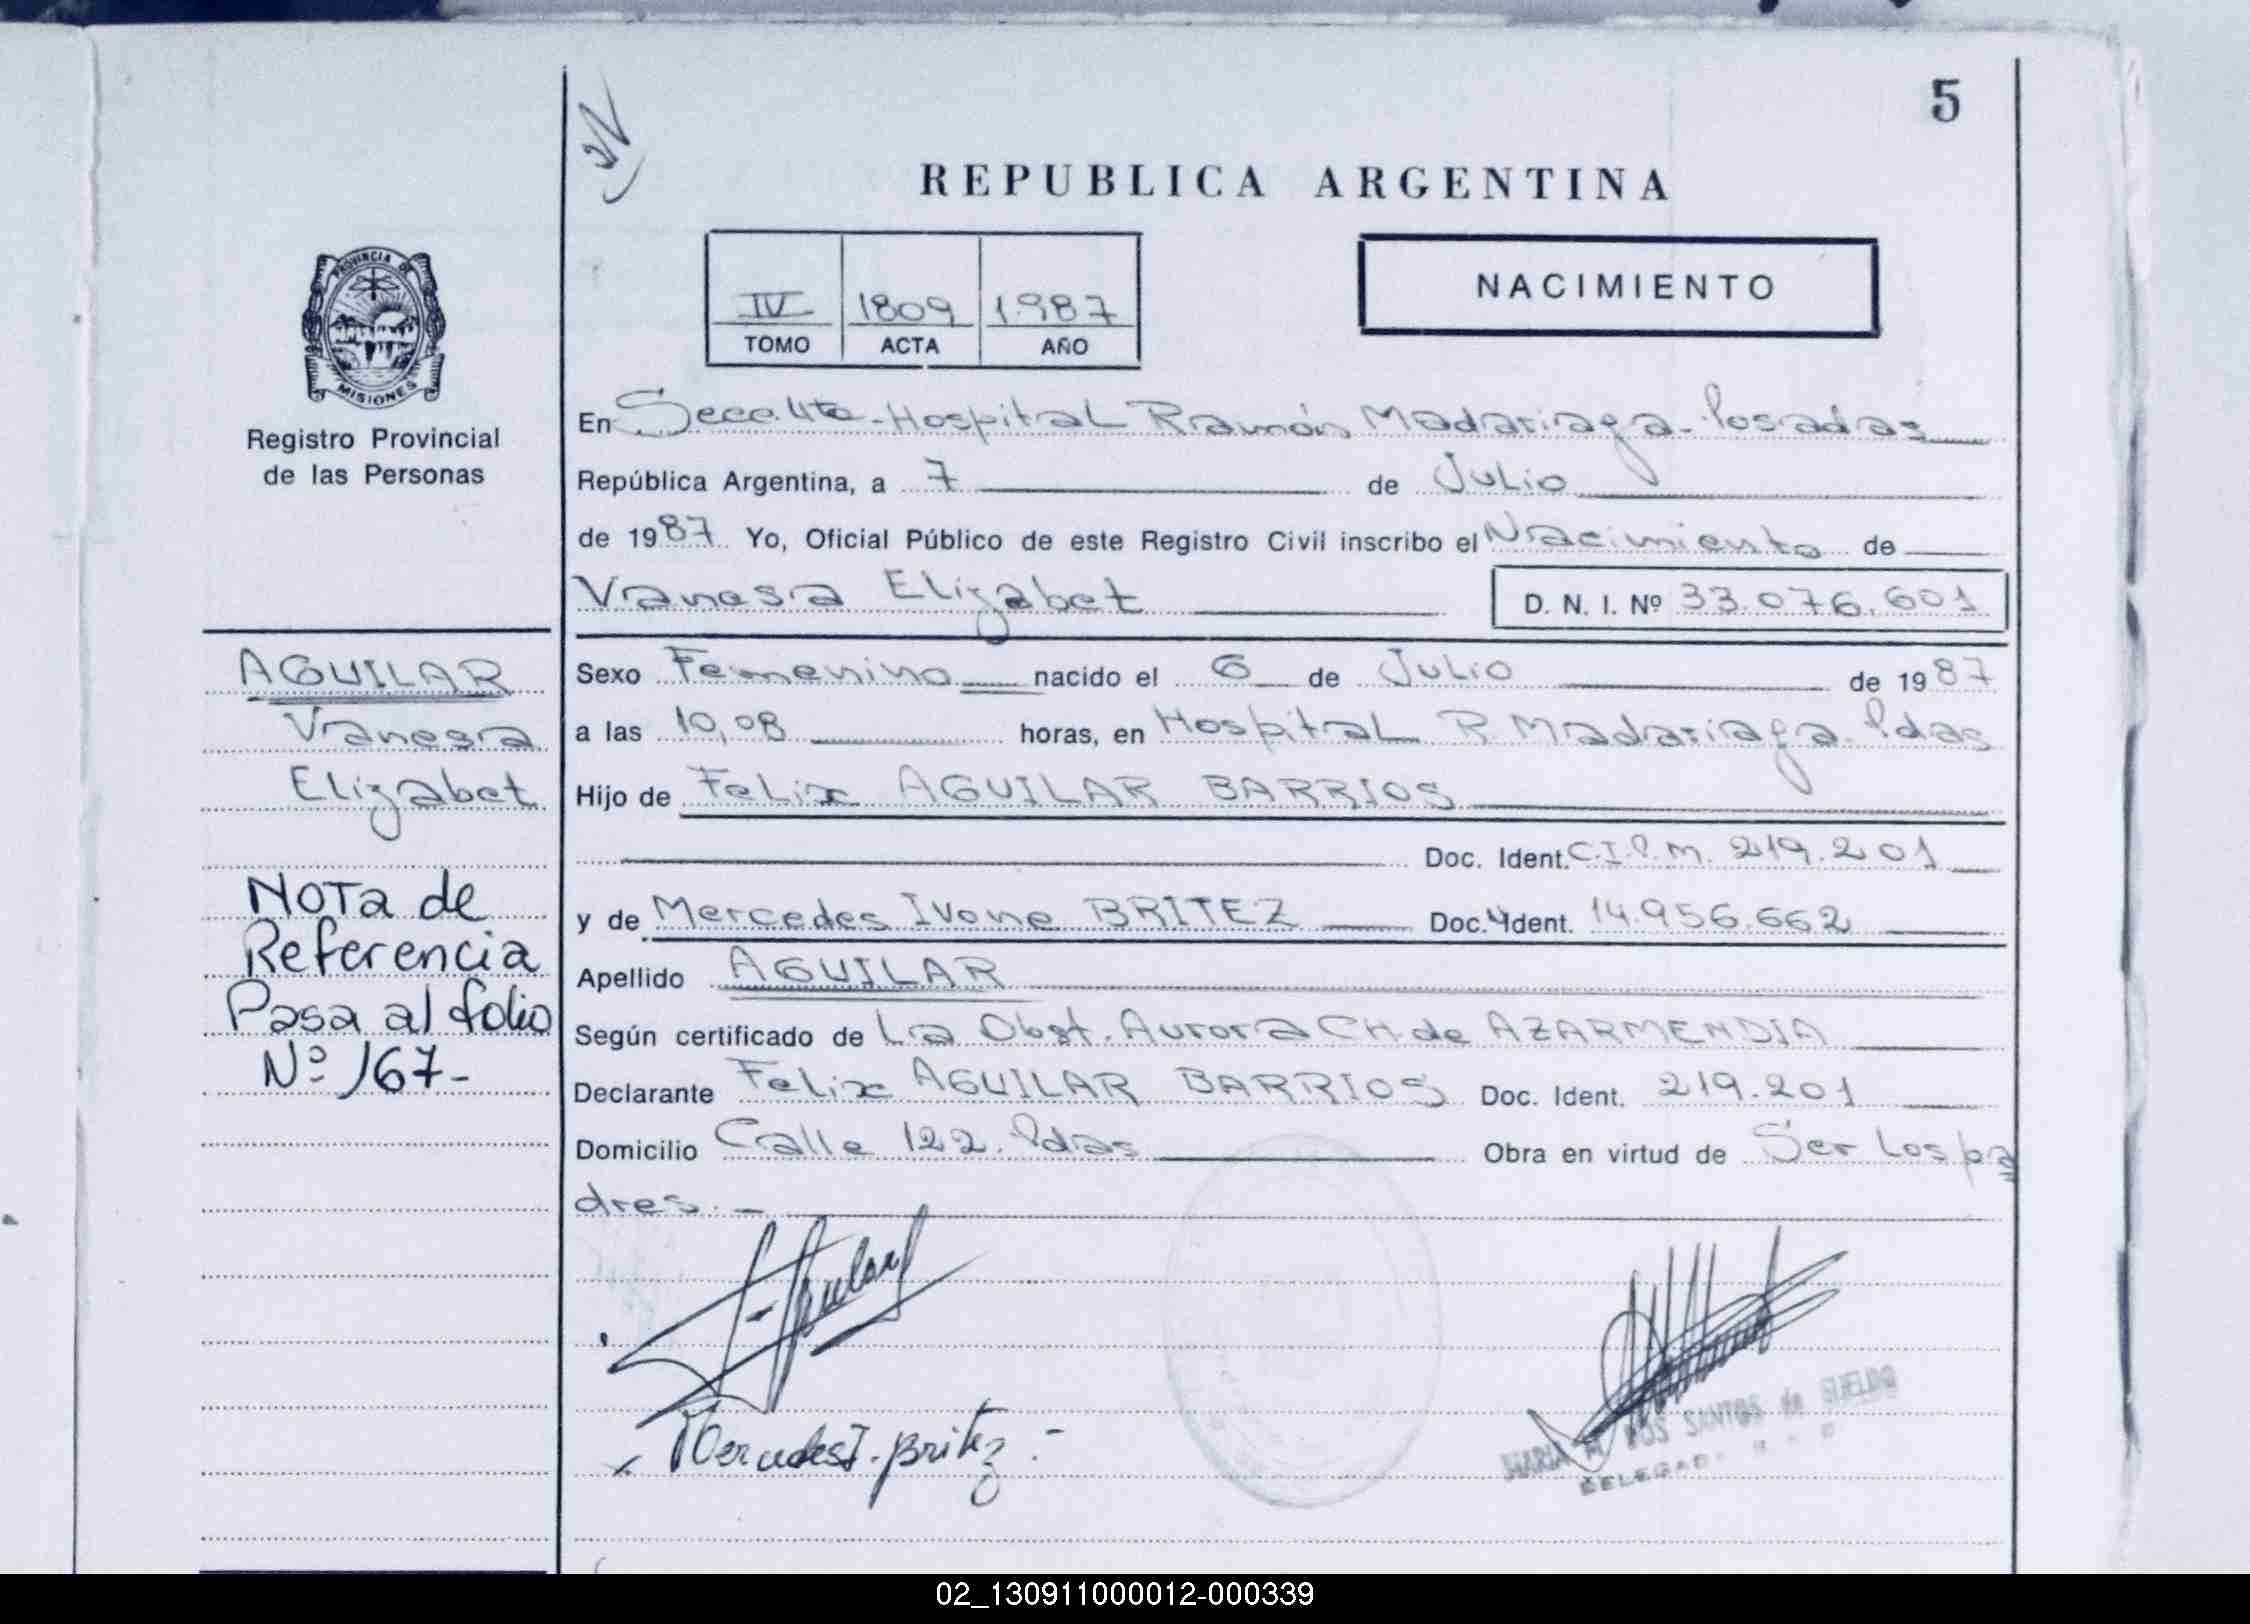 5
REPUBLICA ARGENTINA
NACIMIENTO
IV 1809 1987
TOMO ACTA AÑO
PROVINCIA DE
MISIONES
Registro Provincial
de las Personas
En Secc. 4ta - Hospital Ramón Madariaga - Posadas
República Argentina, a 7 de Julio
de 1987 Yo, Oficial Público de este Registro Civil inscribo el Nacimiento de
Vanesa Elizabet D. N. I. Nº 33.076.601
Sexo Femenino nacido el 6 de Julio de 1987
a las 10,08 horas, en Hospital R. Madariaga - Pdas
Hijo de Felix AGUILAR BARRIOS
Doc. Ident. C.I.P.M. 219.201
y de Mercedes Ivone BRITEZ Doc. Ident. 14.956.662
Apellido AGUILAR
Según certificado de La Obst. Aurora CH. de AZARMENDIA
Declarante Felix AGUILAR BARRIOS Doc. Ident. 219.201
Domicilio Calle 122. Pdas Obra en virtud de Ser Los pa
dres. -
AGUILAR
Vanesa
Elizabet
NOTA de
Referencia
Pasa al folio
Nº 167-
F. Aguilar
Mercedes I. Britez . -
MARIA DOS SANTOS de
02_130911000012-000339